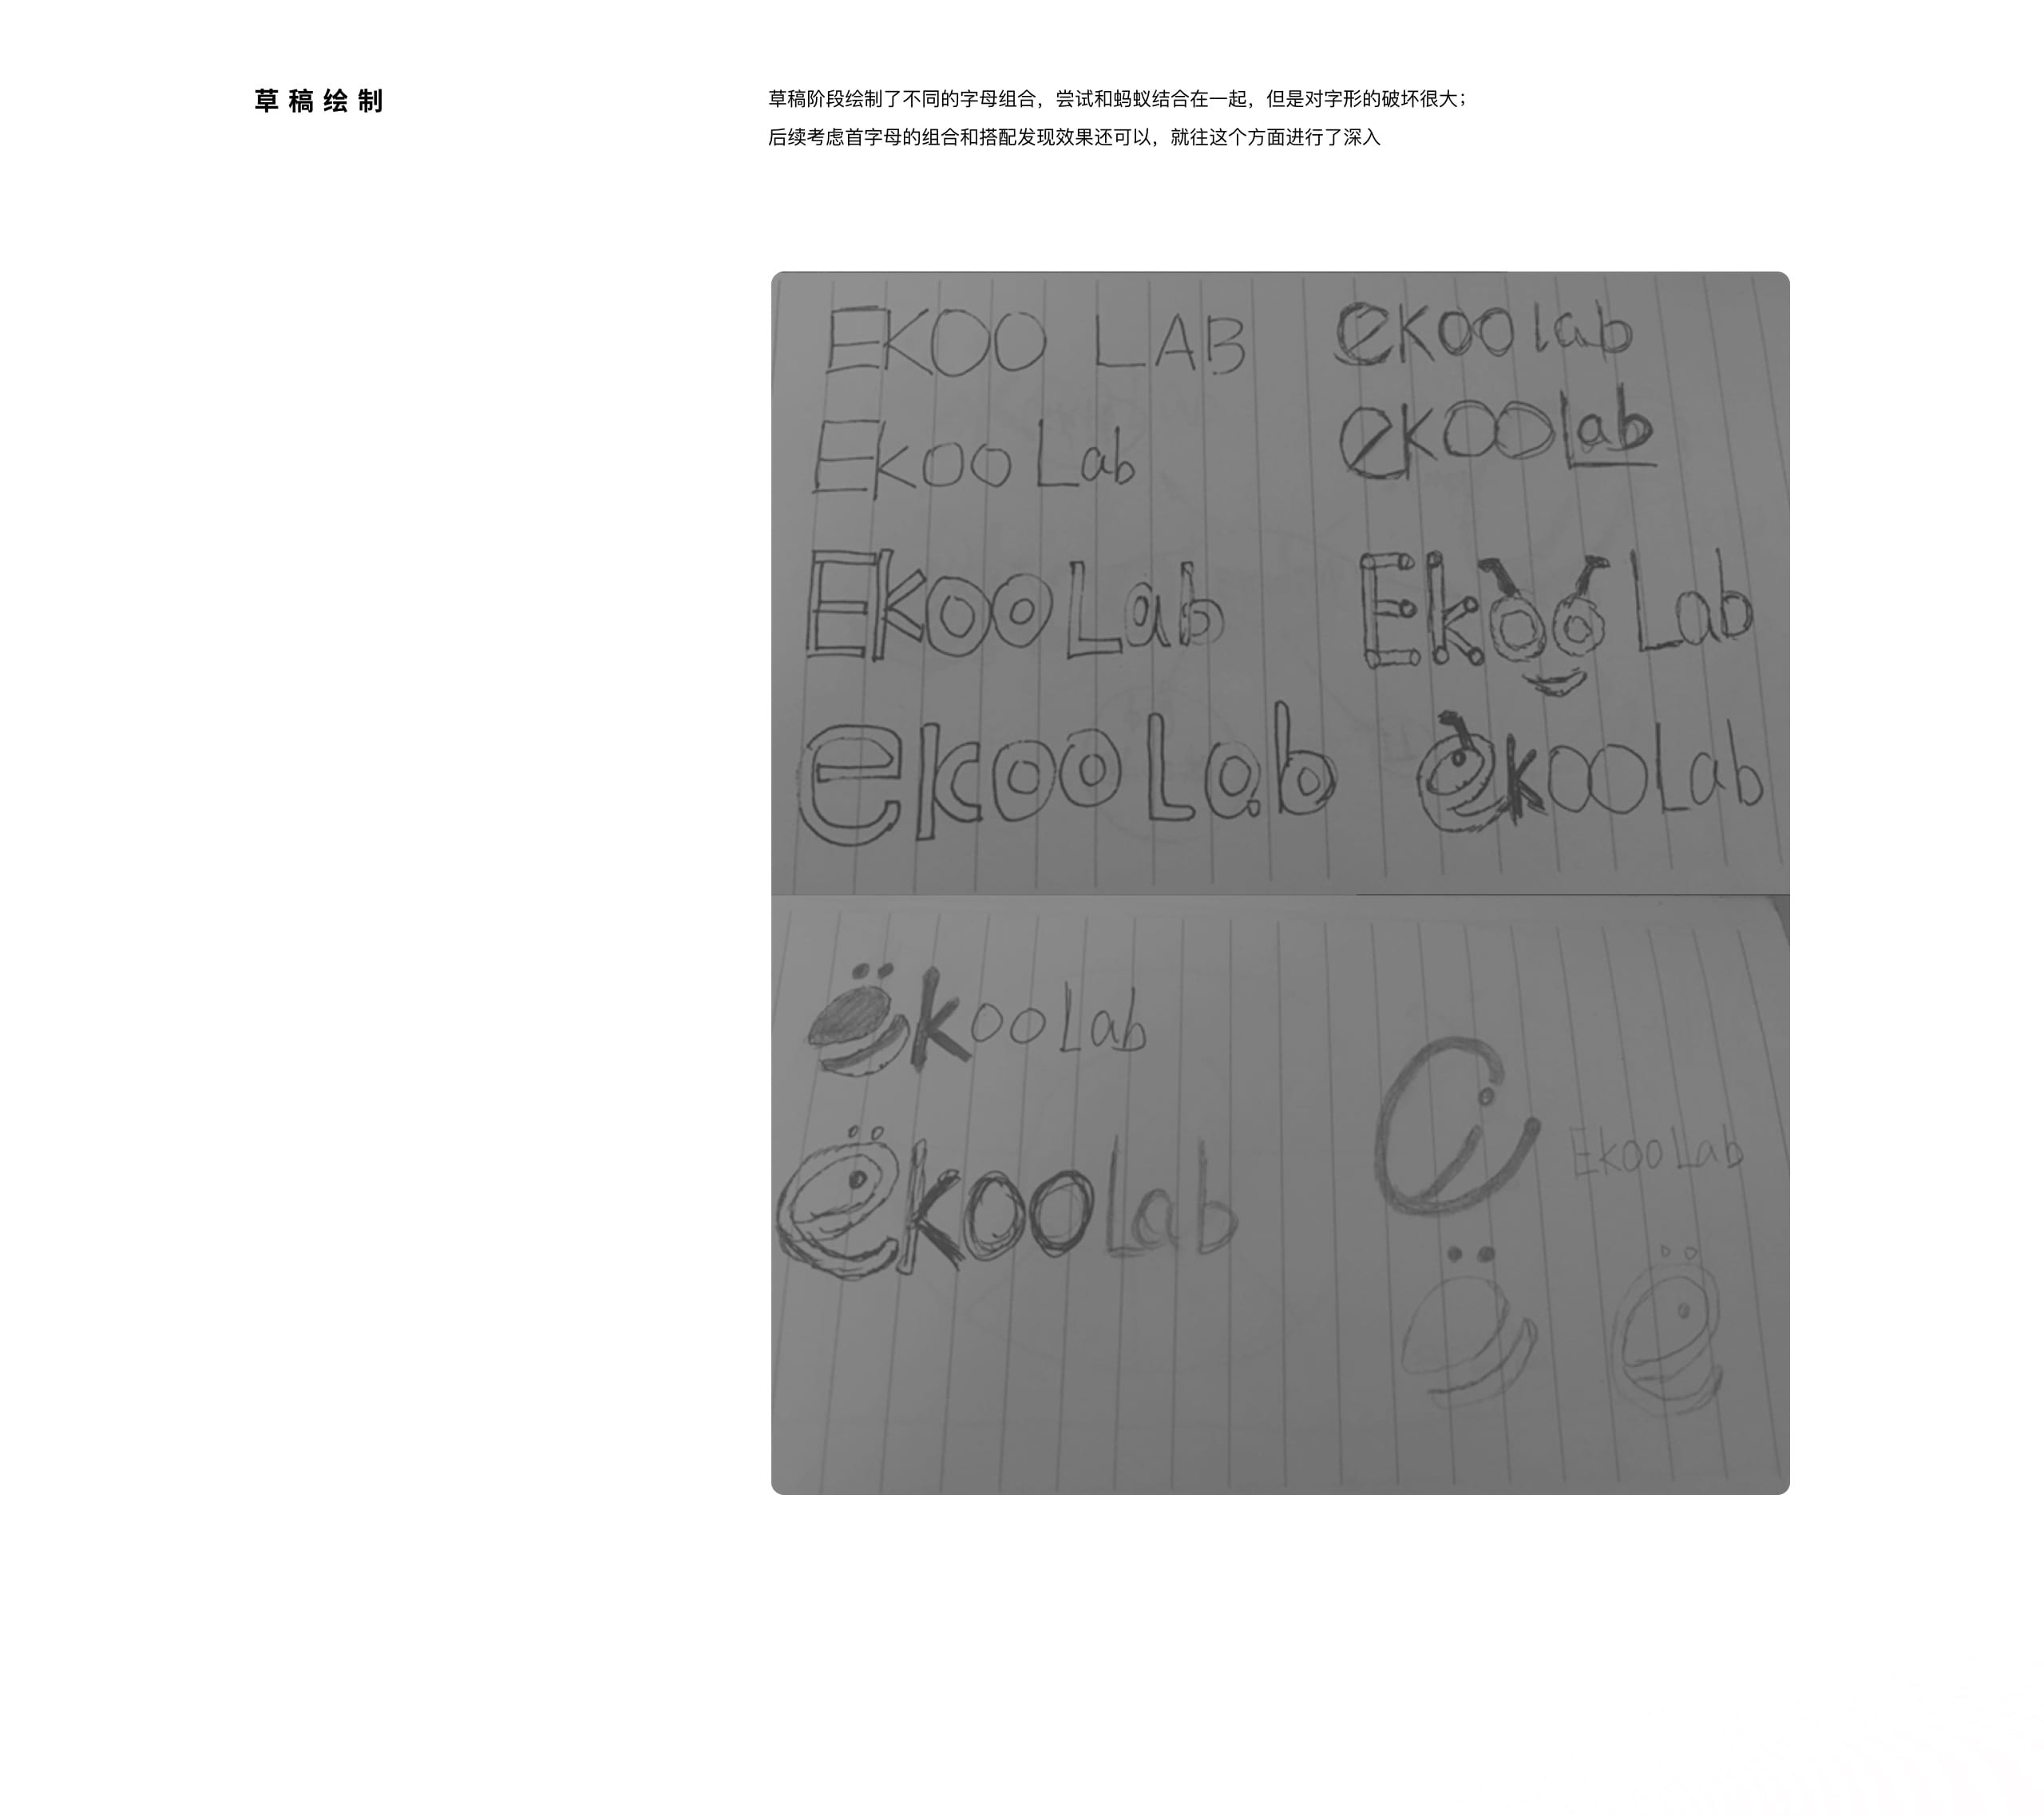 草稿绘制
草稿阶段绘制了不同的字母组合，尝试和蚂蚁结合在一起，但是对字形的破坏很大；
后续考虑首字母的组合和搭配发现效果还可以，就往这个方面进行了深入
EKOO LAB
ekoolab
Ekoo Lab
ekooLab
EkooLab
Ekoo Lab
ekooLab
ekooLab
ëkooLab
ëkooLab
EkooLab